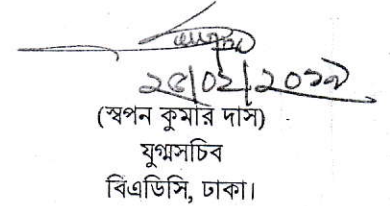 ২৫/০২/২০১৯
(স্বপন কুমার দাস)
যুগ্মসচিব
বিএডিসি, ঢাকা।